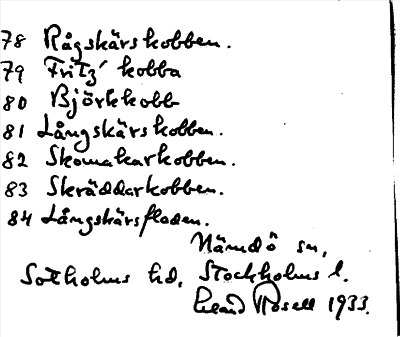 78 Rågskärskobben.
79 Fritz' kobba
80 Björkkobb
81 Långskärskobben.
82 Skomakarkobben.
83 Skräddarkobben.
84 Långskärsfladen.
Nämdö sn,
Sotholms hd, Stockholms l.
Erland Rosell 1933.